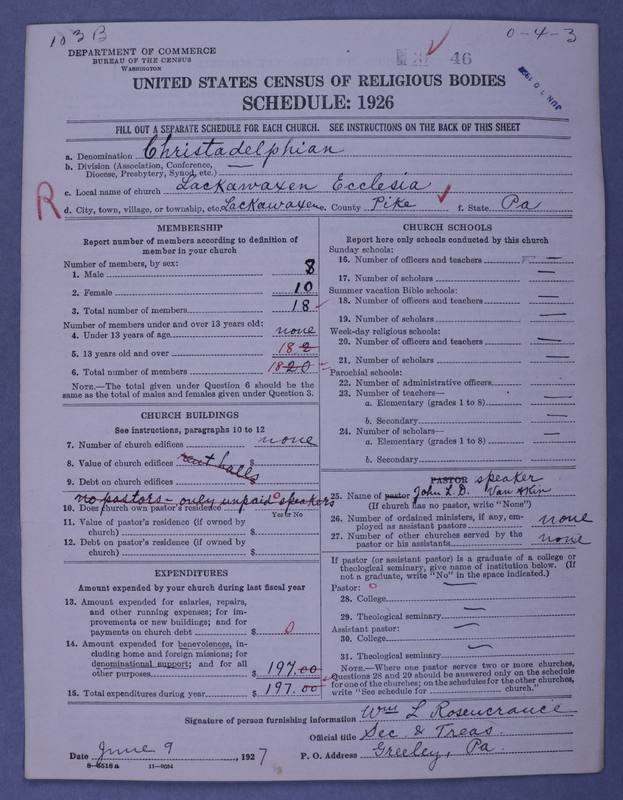 103 B
0-4-3
DEPARTMENT OF COMMERCE
BUREAU OF THE CENSUS
WASHINGTON
46
JUN 10 1927
UNITED STATES CENSUS OF RELIGIOUS BODIES
SCHEDULE: 1926
FILL OUT A SEPARATE SCHEDULE FOR EACH CHURCH. SEE INSTRUCTIONS ON THE BACK OF THIS SHEET
a. Denomination Christadelphian
b. Division (Association, Conference, Diocese, Presbytery, Synod, etc.) —
c. Local name of church Lackawaxen Ecclesia
R
d. City, town, village, or township, etc. Lackawaxen e. County Pike f. State Pa
MEMBERSHIP
Report number of members according to definition of
member in your church
Number of members, by sex:
1. Male 8
2. Female 10
3. Total number of members 18
Number of members under and over 13 years old:
4. Under 13 years of age none
5. 13 years old and over 18 2
6. Total number of members 18 20
NOTE.—The total given under Question 6 should be
same as the total of males and females given under Question 3.
CHURCH BUILDINGS
See instructions, paragraphs 10 to 12
7. Number of church edifices none
8. Value of church edifices rent halls $
9. Debt on church edifices $
no pastors - only unpaid speakers
10. Does church own pastor's residence 0
Yes or No
11. Value of pastor's residence (if owned by
church) $
12. Debt on pastor's residence (if owned by
church) $
EXPENDITURES
Amount expended by your church during last fiscal year
13. Amount expended for salaries, repairs,
and other running expenses; for im-
provements or new buildings; and for
payments on church debt $ 0
14. Amount expended for benevolences, in-
cluding home and foreign missions; for
denominational support; and for all
other purposes $ 197.00
15. Total expenditures during year $ 197.00
CHURCH SCHOOLS
Report here only schools conducted by this church
Sunday schools:
16. Number of officers and teachers —
17. Number of scholars —
Summer vacation Bible schools:
18. Number of officers and teachers —
19. Number of scholars —
Week-day religious schools:
20. Number of officers and teachers —
21. Number of scholars —
Parochial schools:
22. Number of administrative officers —
23. Number of teachers—
a. Elementary (grades 1 to 8) —
b. Secondary —
24. Number of scholars—
a. Elementary (grades 1 to 8) —
b. Secondary —
PASTOR speaker
25. Name of pastor John L. D. Van Akin
(If church has no pastor, write "None")
26. Number of ordained ministers, if any, em-
ployed as assistant pastors none
27. Number of other churches served by the
pastor or his assistants none
If pastor (or assistant pastor) is a graduate of a college or
theological seminary, give name of institution below. (If
not a graduate, write "No" in the space indicated.)
Pastor: 0 —
28. College
29. Theological seminary —
Assistant pastor: —
30. College
31. Theological seminary —
NOTE.—Where one pastor serves two or more churches,
Questions 28 and 29 should be answered only on the schedule
for one of the churches; on the schedules for the other churches,
write "See schedule for church."
Signature of person furnishing information Wm L Rosencrance
Official title Sec & Treas.
Date June 9, 1927 P. O. Address Greeley, Pa.
8—5515a 11—9034